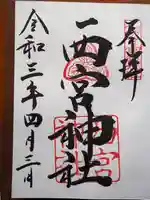 奉拝
西宮神社
令和三年四月三日